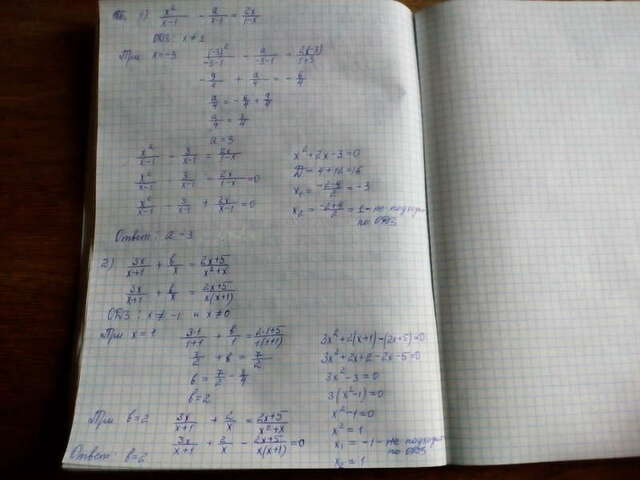 1) x²/(x-1) - a/(x-1) = 2x/(1-x)
ОДЗ: x ≠ 1
При x = -3 (-3)²/(-3-1) - a/(-3-1) = 2(-3)/(1+3)
-9/4 + a/4 = -6/4
a/4 = -6/4 + 9/4
a/4 = 3/4
a = 3
x²/(x-1) - 3/(x-1) = 2x/(1-x)
x²/(x-1) - 3/(x-1) - 2x/(1-x) = 0
x²/(x-1) - 3/(x-1) + 2x/(x-1) = 0
x² + 2x - 3 = 0
D = 4 + 12 = 16
x₁ = (-2-4)/2 = -3
x₂ = (-2+4)/2 = 1 - не подходит
по ОДЗ
Ответ: a = 3
2) 3x/(x+1) + b/x = (2x+5)/(x²+x)
3x/(x+1) + b/x = (2x+5)/(x(x+1))
ОДЗ: x ≠ -1 и x ≠ 0
При x = 1 3·1/(1+1) + b/1 = (2·1+5)/(1(1+1))
3/2 + b = 7/2
b = 7/2 - 3/2
b = 2
При b = 2 3x/(x+1) + 2/x = (2x+5)/(x²+x)
3x/(x+1) + 2/x - (2x+5)/(x(x+1)) = 0
3x² + 2(x+1) - (2x+5) = 0
3x² + 2x + 2 - 2x - 5 = 0
3x² - 3 = 0
3(x² - 1) = 0
x² - 1 = 0
x² = 1
x₁ = -1 - не подходит
по ОДЗ
x₂ = 1
Ответ: b = 2